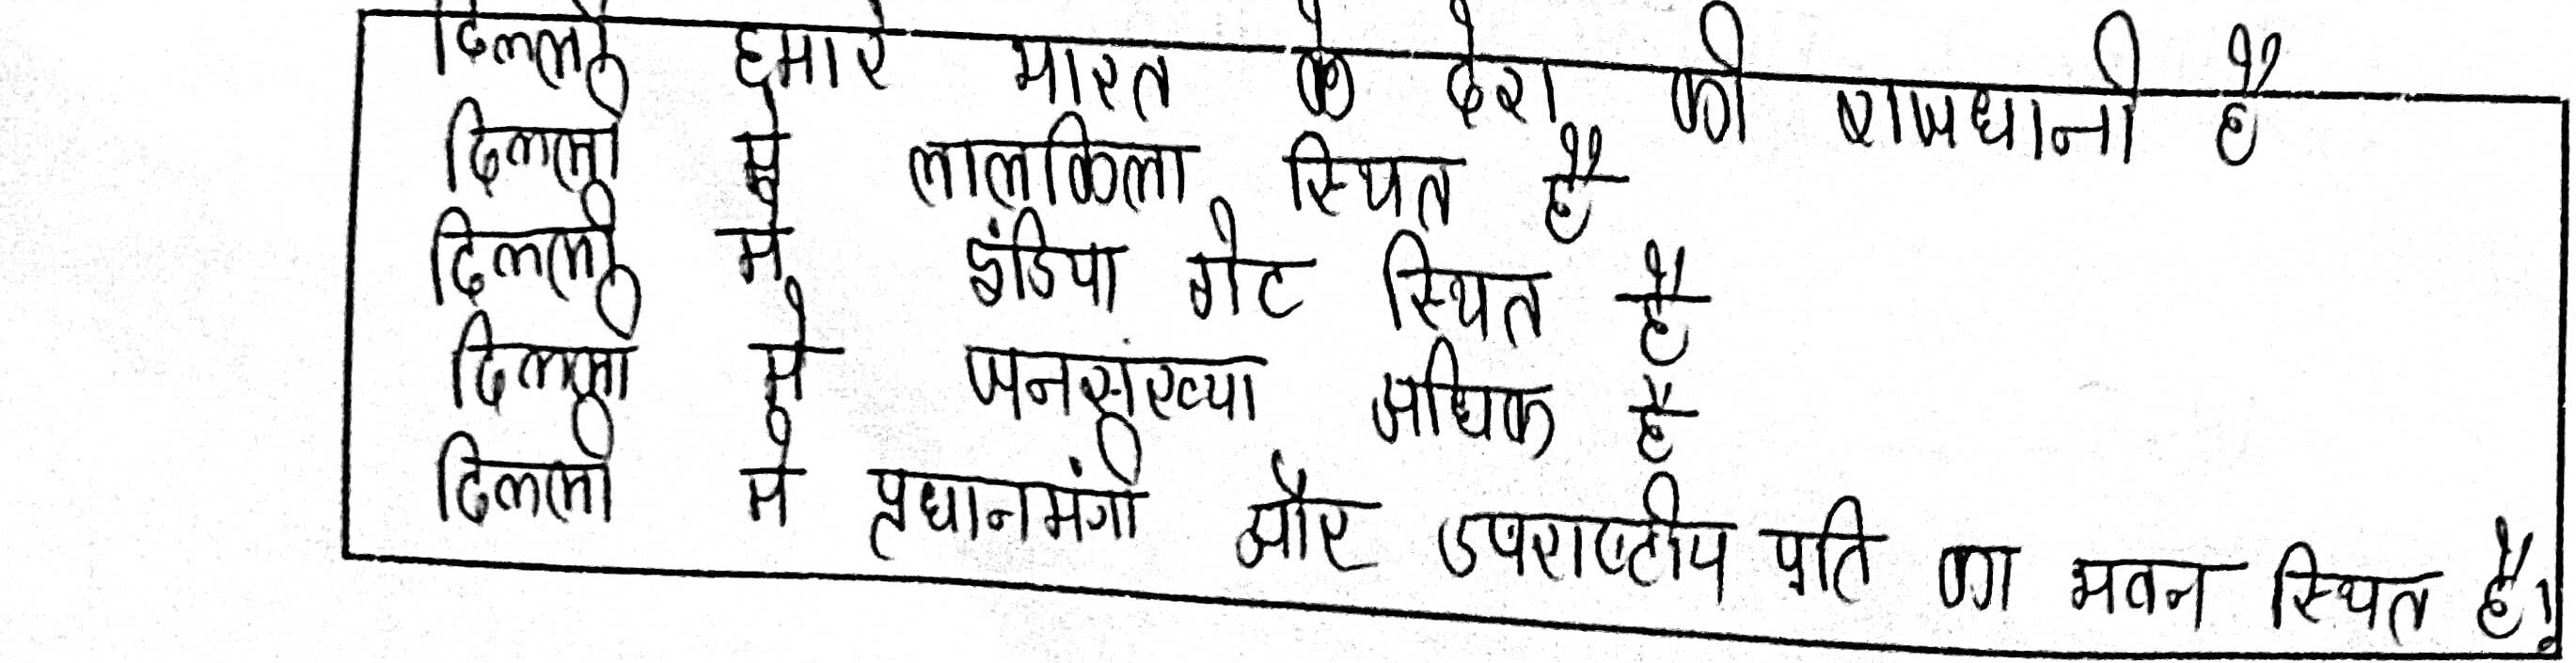 दिल्ली हमारे भारत के देश की राजधानी है
दिल्ली में लालकिला स्थित है
दिल्ली में इंडिया गेट स्थित है
दिल्ली में जनसंख्या अधिक है
दिल्ली में प्रधानमंत्री और उपराष्टीय पति का भवन स्थित है।